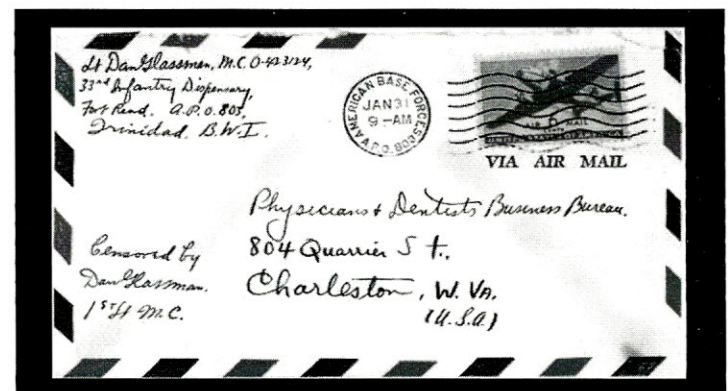 Lt Dan Glassman, M.C. O-423124,
33rd Infantry Dispensary,
Fort Read. A.P.O. 803,
Trinidad. B.W.I.
AMERICAN BASE FORCES
JAN 31
9 - AM
A.P.O. 803
VIA AIR MAIL
Physicians & Dentists Business Bureau.
804 Quarrier St.,
Charleston, W. VA.
(U.S.A)
Censored by
Dan Glassman.
1st Lt M.C.